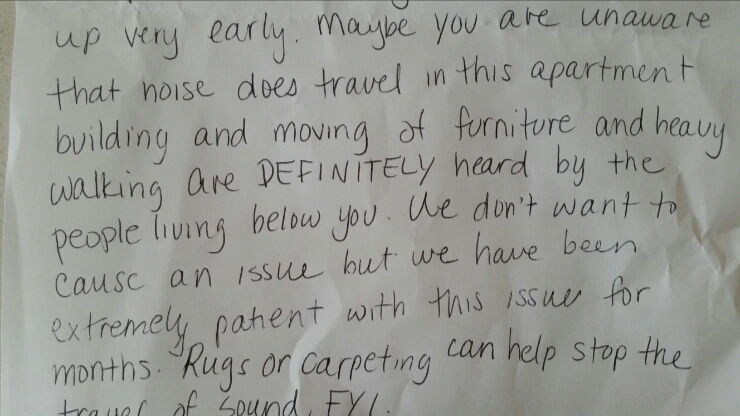 up very early. Maybe you are unaware
that noise does travel in this apartment
building and moving of furniture and heavy
walking are DEFINITELY heard by the
people living below you. We don't want to
cause an issue but we have been
extremely patient with this issue for
months. Rugs or carpeting can help stop the
travel of sound, FYI.